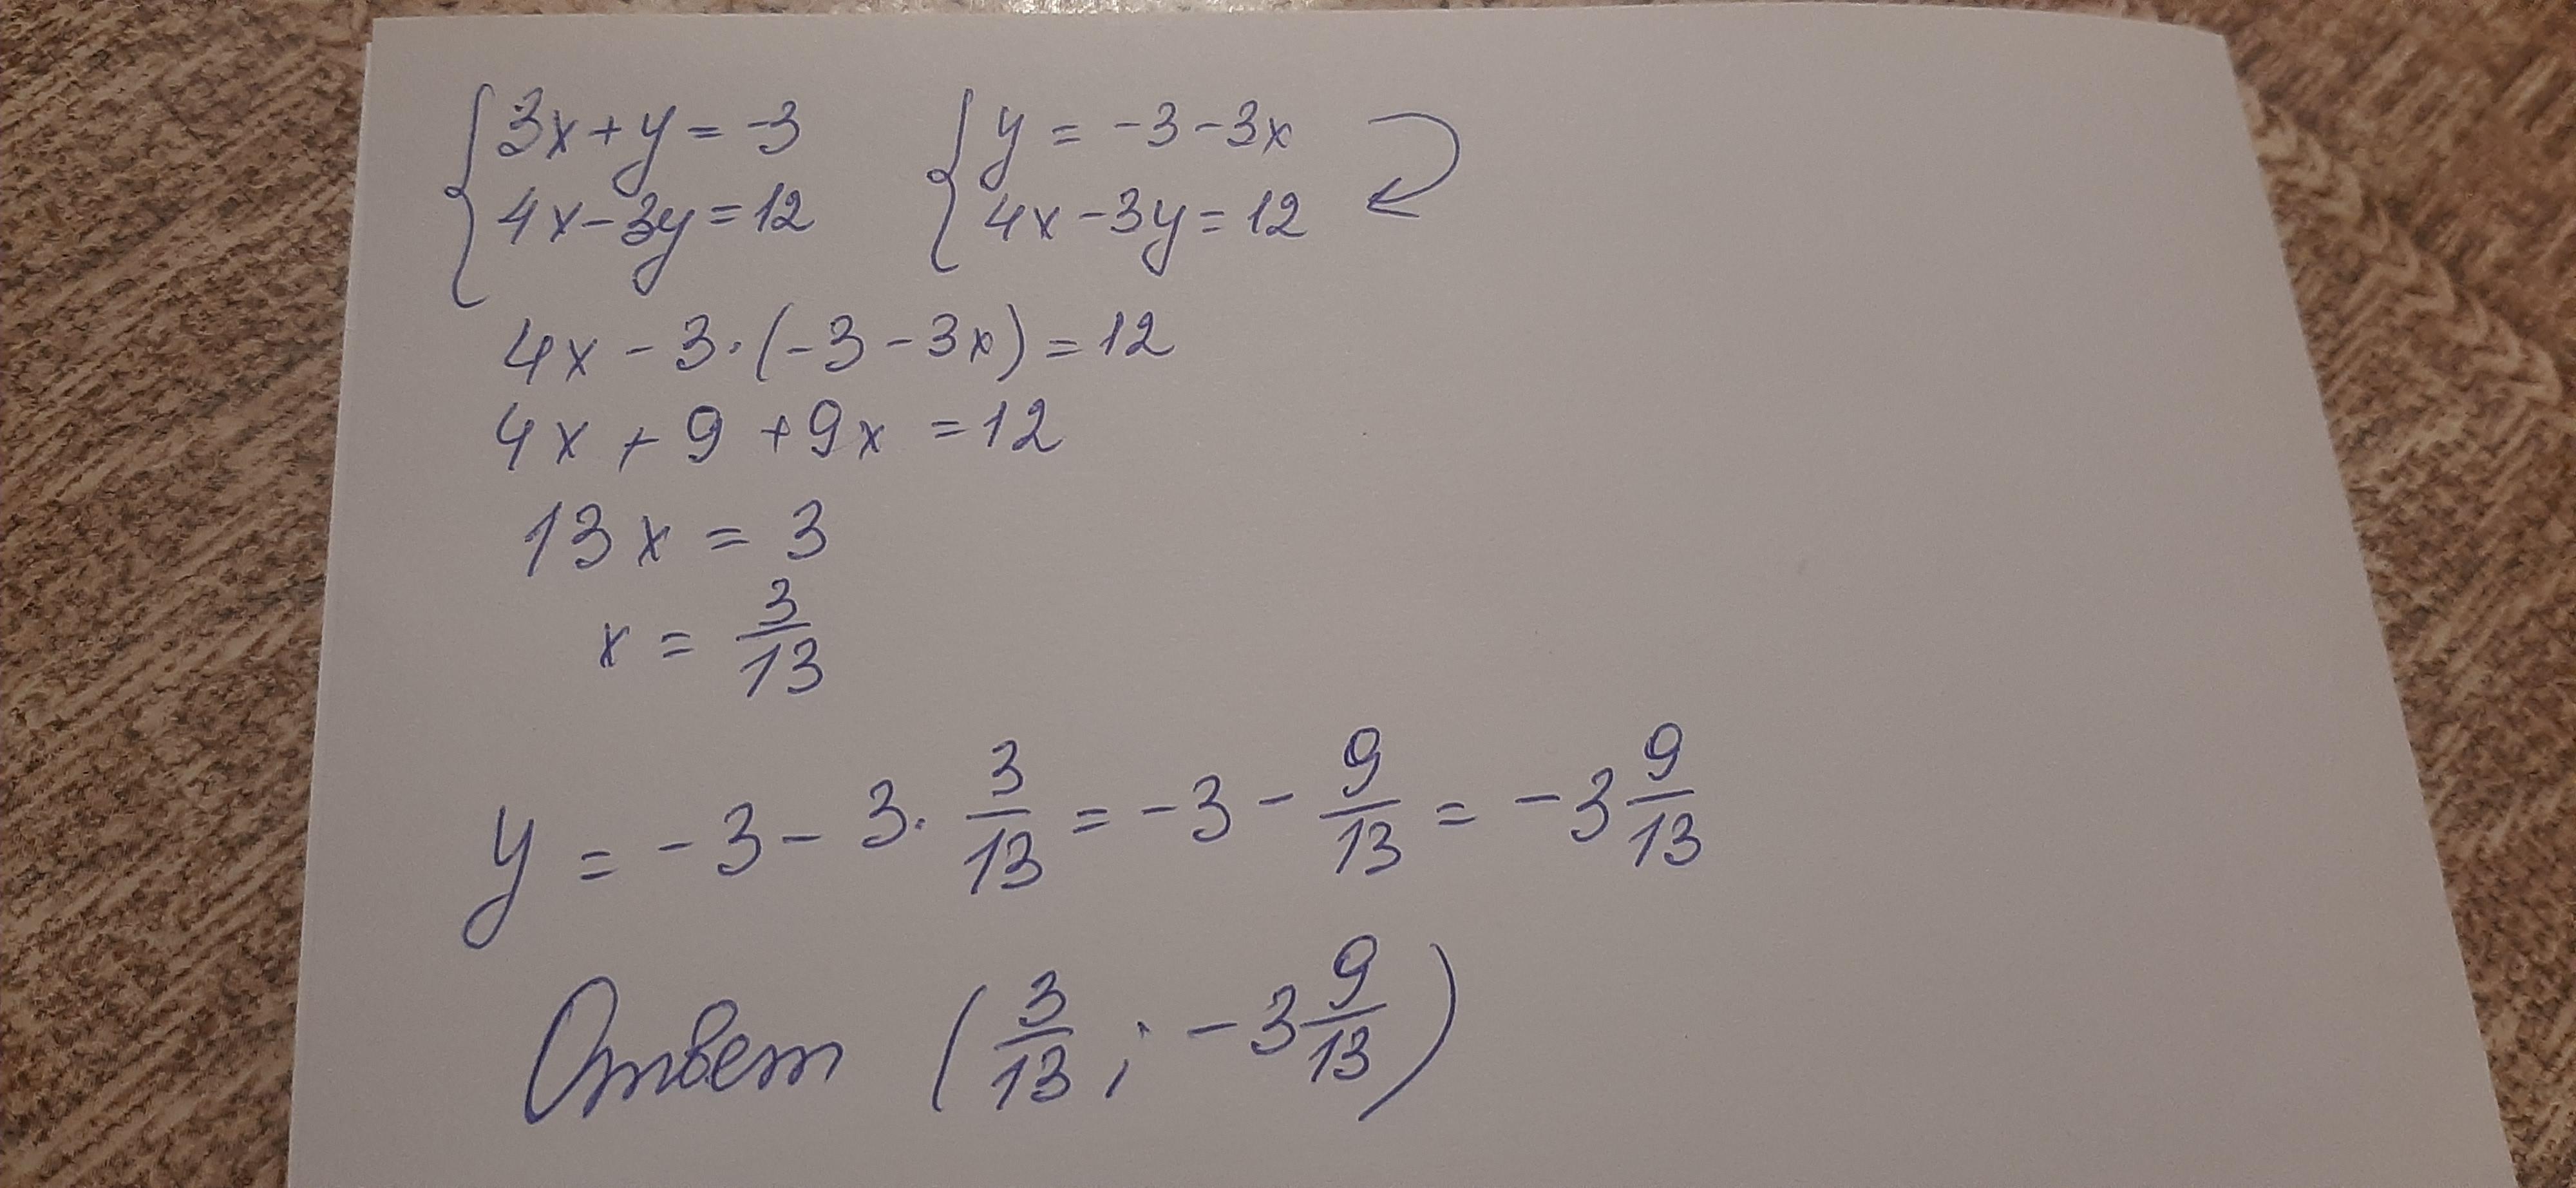 {3x+y=-3 {y=-3-3x
4x-3y=12 4x-3y=12
4x-3·(-3-3x)=12
4x+9+9x=12
13x=3
x=3/13
y=-3-3·3/13=-3-9/13=-3 9/13
Ответ (3/13; -3 9/13)